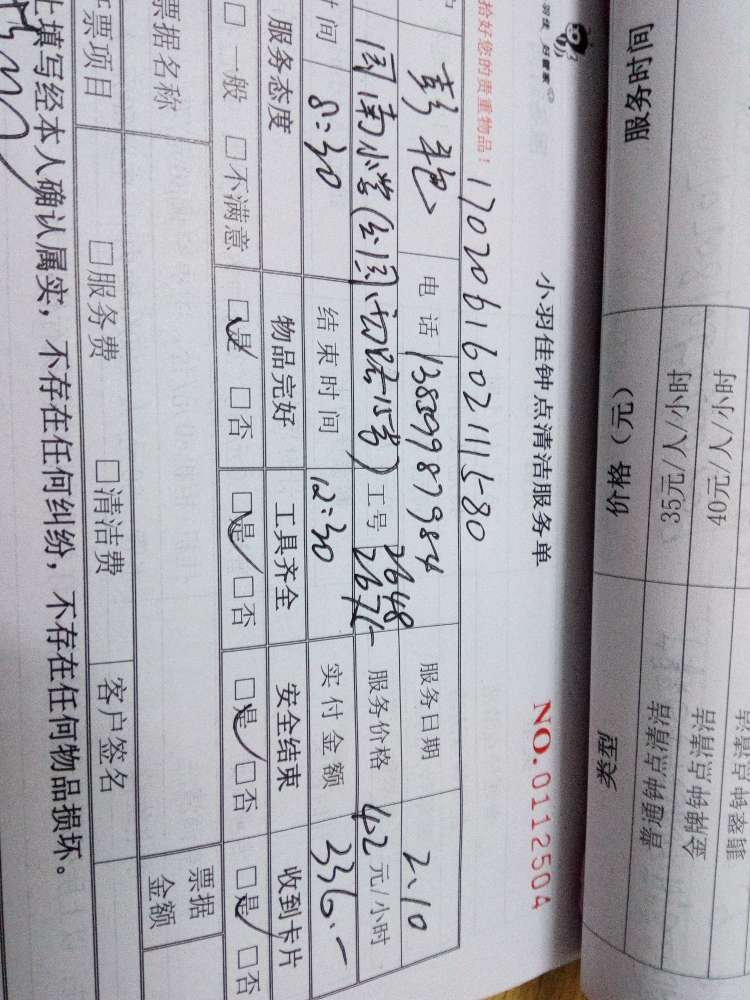 小羽佳钟点清洁服务单
NO.0112504
拾好您的贵重物品！
1702061602111580
彭艳 电话 13859987984 服务日期 2.10
同南小学 工号 2648 2671 服务价格 42元/小时
时间 8:30 结束时间 12:30 实付金额 336.-
服务态度 物品完好 工具齐全 安全结束 收到卡片
□一般 □不满意 □是 □否 □是 □否 □是 □否 □是 □否
票据名称 票据金额
票项目 □服务费 □清洁费 客户签名
上填写经本人确认属实，不存在任何纠纷，不存在任何物品损坏。
服务时间 价格（元） 类型
35元/人/小时 普通钟点清洁
40元/人/小时 金牌钟点清洁